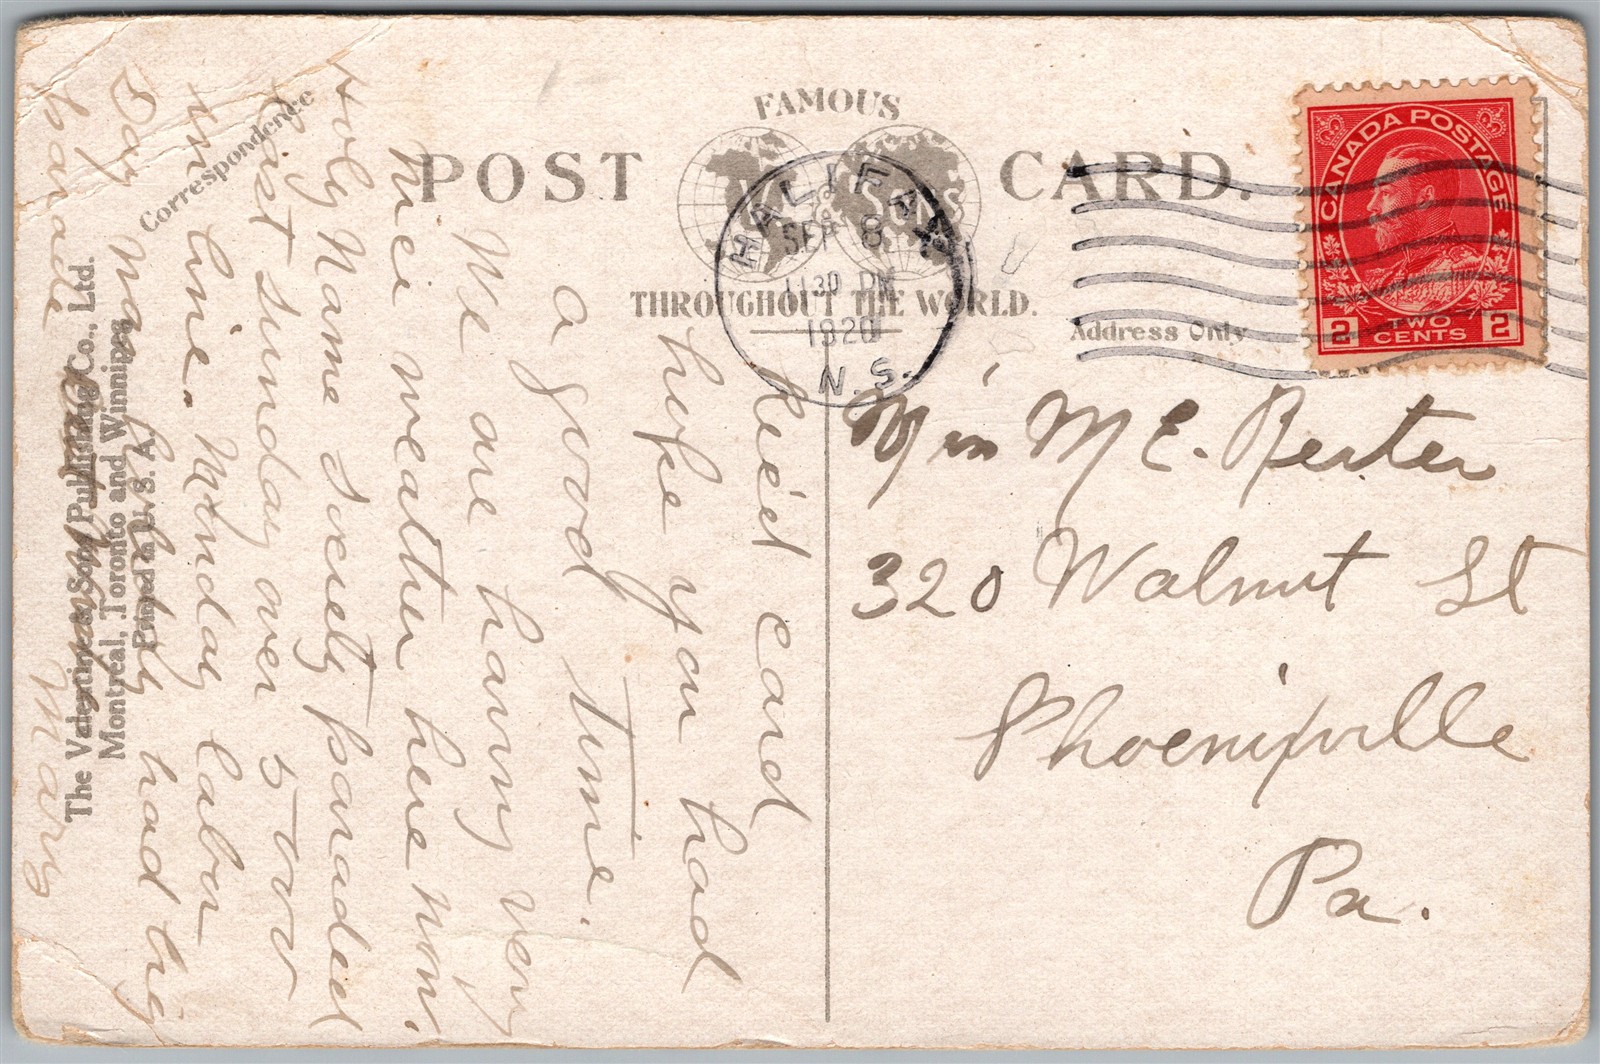 FAMOUS
POST CARD.
VALENTINE & SONS
THROUGHOUT THE WORLD.
Correspondence
Address Only
HALIFAX
SEP 8
1130 PM
1920
N.S.
CANADA POSTAGE
2 TWO CENTS 2
Miss M E. Reiter
320 Walnut St
Phoenixville
Pa.
Rec'd card
hope you had
a good time.
We are having very
nice weather here now.
Holy Name Society paraded
last sunday over 5000
in line. Monday Labor
Day was had big
parade
Mary
The Valentine & Sons Publishing Co., Ltd.
Montreal, Toronto and Winnipeg
Printed in U. S. A.